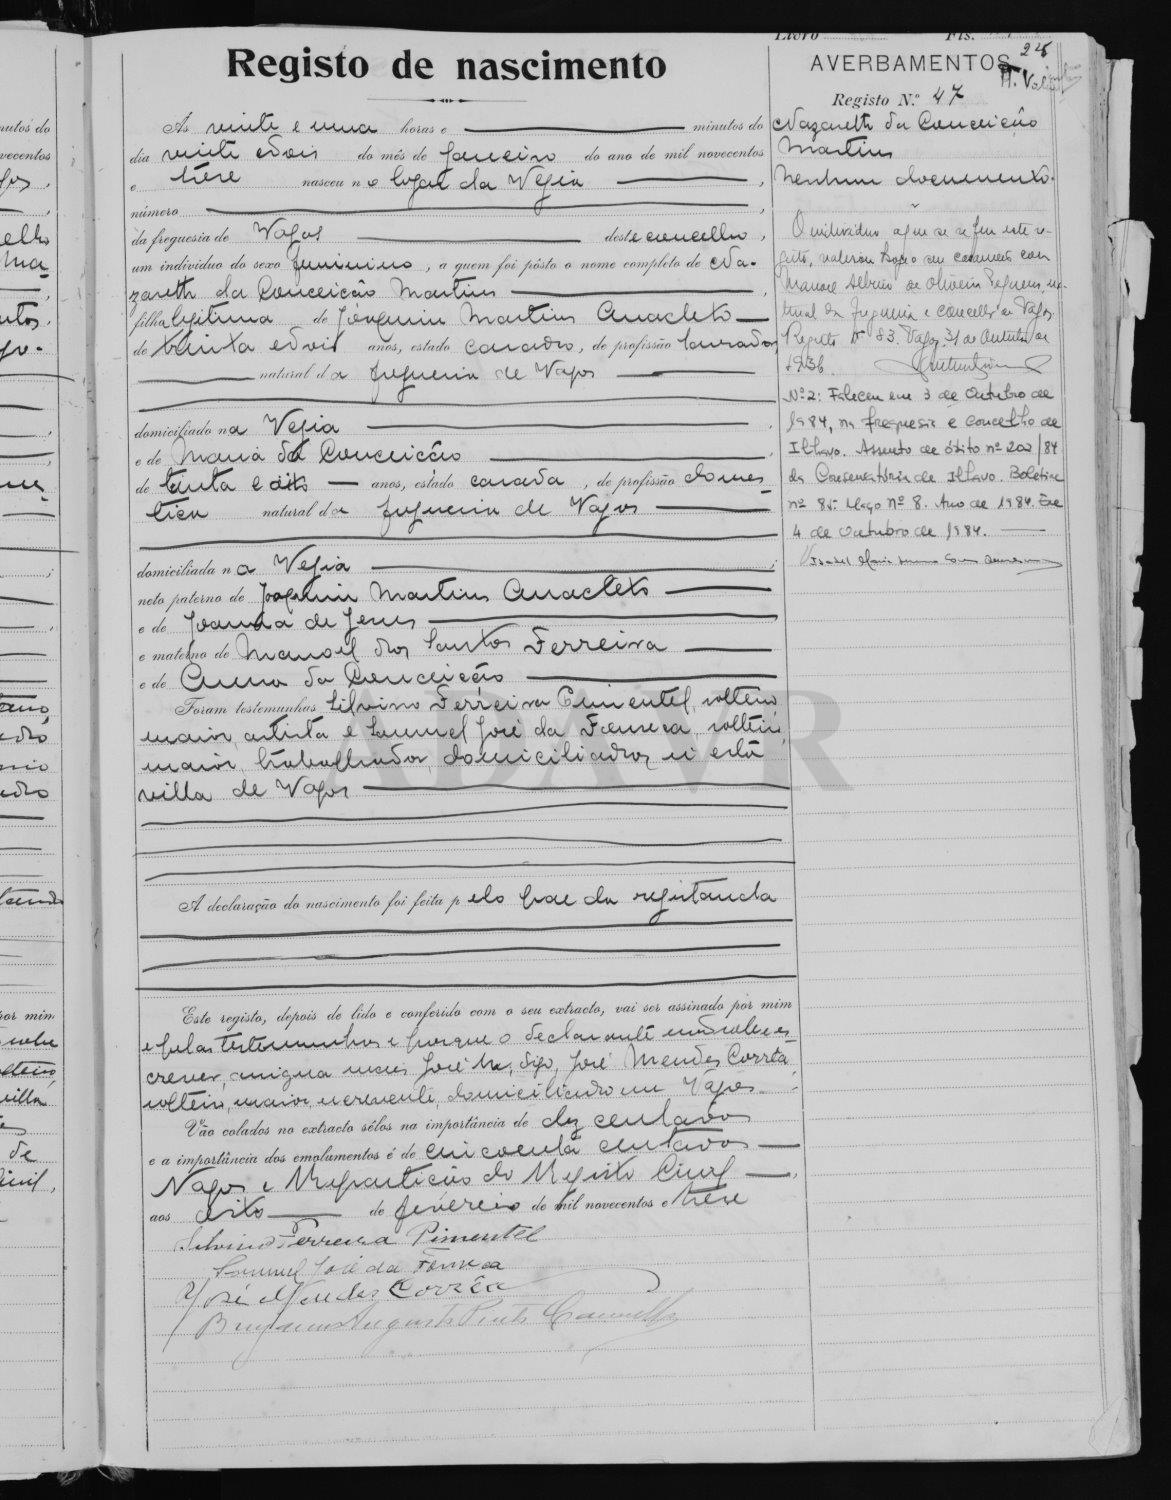 Livro Fls. 24
Registo de nascimento
AVERBAMENTOS
Registo N.º 47
Ás vinte e uma horas e minutos do
dia vinte e dois do mês de Janeiro do ano de mil novecentos
e trese nasceu no logar da Vegia,
número,
da freguesia de Vagos deste concelho,
um individuo do sexo femenino, a quem foi pôsto o nome completo de Na-
zareth da Conceicão Martins,
filha legitima de Joaquim Martins Anacleto
de trinta e dois anos, estado casado, de profissão lavrador,
natural da freguesia de Vagos
domiciliado na Vegia,
e de Maria da Conceicão
de trinta e oito anos, estado casada, de profissão domes-
tica natural da freguesia de Vagos
domiciliada na Vegia;
neto paterno de Joaquim Martins Anacleto
e de Joanna de Jesus
e materno de Manoel dos Santos Ferreira
e de Anna da Conceicão
Foram testemunhas Silvino Ferreira Pimentel, solteiro,
maior, artista e Samuel José da Fonseca, solteiro,
maior, trabalhador, domiciliados n'esta
villa de Vagos
A declaração do nascimento foi feita pelo pae da registanda
Este registo, depois de lido e conferido com o seu extracto, vai ser assinado por mim
e pelas testemunhas e porque o declarante não sabe es-
crever, assigna José Mendes Corrêa,
solteiro, maior, escrevente, domiciliado em Vagos.
Vão colados no extracto sêlos na importância de dez centavos
e a importância dos emolumentos é de cincoenta centavos
Vagos e Reparticão do Registo Civil,
aos oito de fevereiro de mil novecentos e trese
Silvino Ferreira Pimentel
Samuel José da Fonseca
José Mendes Corrêa
Nazareth da Conceicão
Martins
Nenhum documento.
O individuo a que se refere este re-
gisto, casamento com
Manoel de Oliveira na-
tural da freguesia e concelho de Vagos.
Registo nº 83. Vagos, 31 de Outubro de
1936.
Nº 2: Faleceu em 3 de Outubro de
1984, na freguesia e concelho de
Ilhavo. Assento de óbito nº 202/84
da Conservatória de Ilhavo. Boletim
nº 85. Maço Nº 8. Ano de 1984. Em
4 de Outubro de 1984.
ADAVR